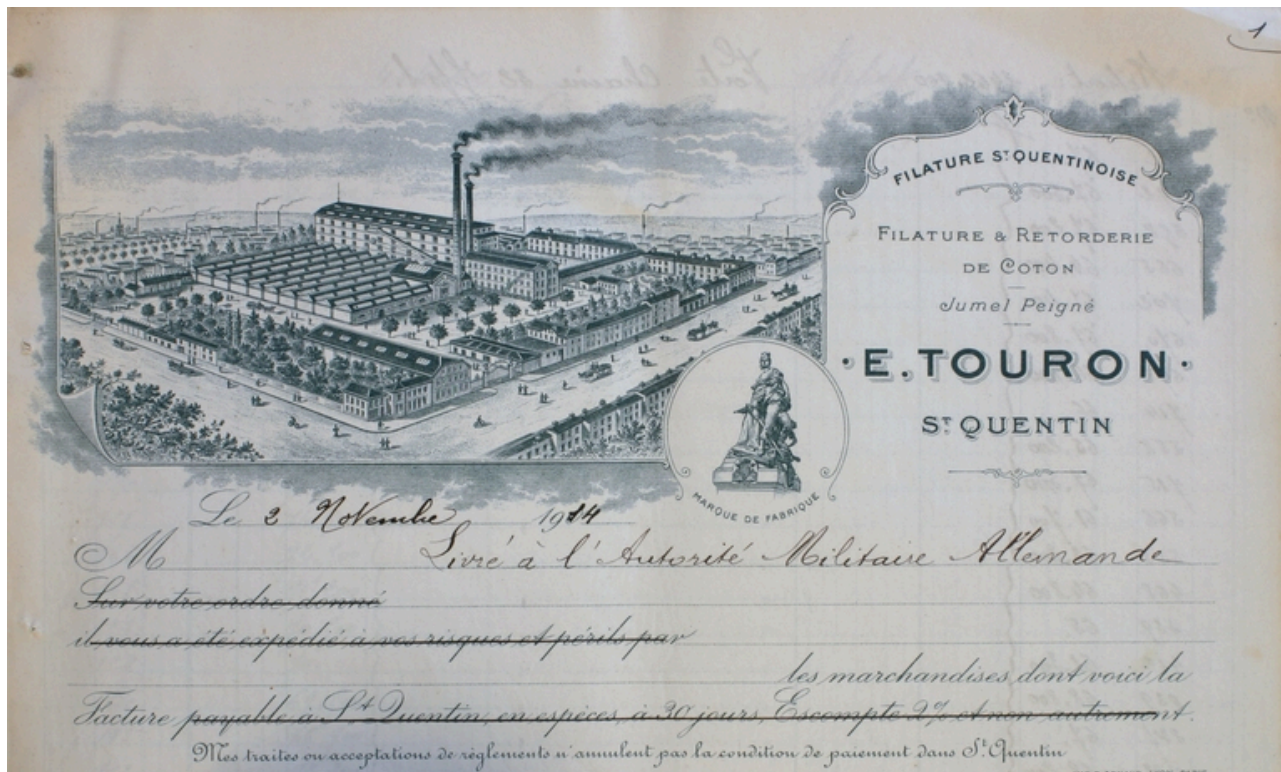 1
FILATURE ST QUENTINOISE
FILATURE & RETORDERIE
DE COTON
Jumel Peigné
· E. TOURON ·
ST QUENTIN
MARQUE DE FABRIQUE
Le 2 Novembre 1914
M Livré à l'Autorité Militaire Allemande
Sur votre ordre donné
il vous a été expédié à vos risques et périls par
les marchandises dont voici la
Facture payable à St Quentin, en espèces, à 30 jours, Escompte 2% et non autrement.
Mes traites ou acceptations de règlements n'annulent pas la condition de paiement dans St Quentin